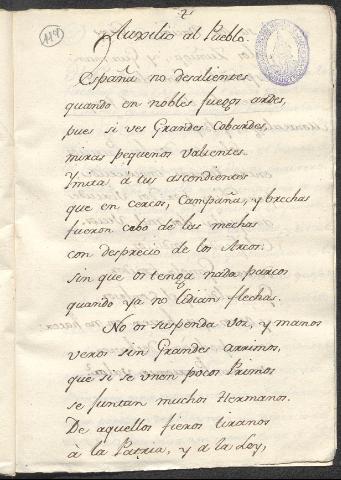 2
119
Auxilio al Pueblo.
España no desalientes
quando en nobles fuegos ardes,
pues si ves Grandes Cobardes,
miras pequenos valientes.
Ymita â tus ascendientes
que en cercos, Campaña, y brechas
fueron cabo de las mechas
con desprecio de los Arcos:
sin que os tenga nada parcos
quando ya no lidian flechas.
No os suspenda voz, y manos
veros sin Grandes arrimos,
que si se vnen pocos Primos
se juntan muchos Hermanos.
De aquellos fieros tiranos
â la Patria, y a la Ley,